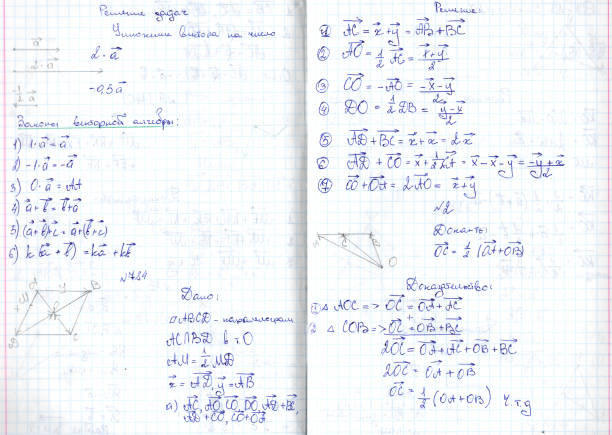 Решение задач
Умножение вектора на число
a⃗
2·a⃗
2·a⃗
-1/2 a⃗
-0,5a⃗
Законы векторной алгебры:
1) 1·a⃗ = a⃗
2) -1·a⃗ = -a⃗
3) 0·a⃗ = AA⃗
4) a⃗+b⃗ = b⃗+a⃗
5) (a⃗+b⃗)+c⃗ = a⃗+(b⃗+c⃗)
6) k(a⃗+b⃗) = ka⃗ + kb⃗
№784
A y B
M O
D C
Дано:
▱ABCD - параллелограм
AC∩BD в т.O
AM = 1/2 MD
x⃗ = AD⃗, y⃗ = AB⃗
а) AC⃗, AO⃗, CO⃗, DO⃗, AD⃗+BC⃗,
AD⃗+CO⃗, CO⃗+OA⃗
Решение:
① AC⃗ = x⃗+y⃗ = AB⃗+BC⃗
② AO⃗ = 1/2 AC⃗ = (x⃗+y⃗)/2
③ CO⃗ = -AO⃗ = (-x⃗-y⃗)/2
④ DO⃗ = 1/2 DB⃗ = (y⃗-x⃗)/2
⑤ AD⃗+BC⃗ = x⃗+x⃗ = 2·x⃗
⑥ AD⃗+CO⃗ = x⃗+1/2 CA⃗ = x⃗-x⃗-y⃗ = (-y⃗+x⃗)/2
⑦ CO⃗+OA⃗ = 2·AO⃗ = x⃗+y⃗
№2
A C B
O
Доказать:
OC⃗ = 1/2 (OA⃗+OB⃗)
Доказательство:
① △ AOC => OC⃗ = OA⃗+AC⃗
+
2 △ COB => OC⃗ = OB⃗+BC⃗
2OC⃗ = OA⃗+AC⃗+OB⃗+BC⃗
2OC⃗ = OA⃗+OB⃗
OC⃗ = 1/2 (OA+OB) ч.т.д